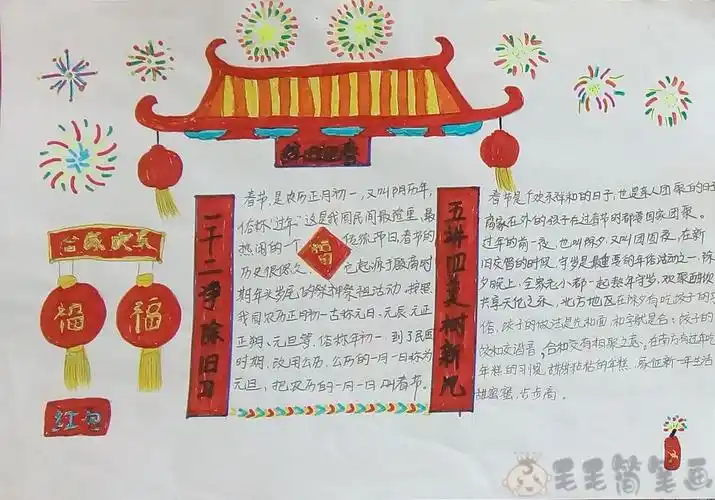 合家欢乐
福
福
红包
一干二净除旧习
五讲四美树新风
春节,是农历正月初一,又叫阴历年,
俗称“过年”这是我国民间最隆重、最
热闹的一个 传统节日。春节的
历史很悠久, 它起源于殷商时
期年头岁尾的祭神祭祖活动。按照
我国农历正月初一古称元日、元辰、元正
正朔、元旦等,俗称年初一,到了民国
时期,改用公历,公历的一月一日称为
元旦,把农历的一月一日叫春节。
福
春节是个欢乐祥和的日子,也是亲人团聚的日子
离家在外的孩子在过春节时都要回家团聚。
过年的前一夜,也叫除夕又叫团圆夜,在新
旧交替的时候,守岁是最重要的年俗活动之一,除
夕晚上,全家老小都一起熬年守岁,欢聚酣饮
共享天伦之乐,北方地区在除夕有吃饺子的习
俗,饺子的做法是先和面,和字就是合;饺子的
饺和交谐音,合和交有相聚之意。在南方有过年吃
年糕的习惯,甜甜粘粘的年糕,象征新一年生活
甜蜜蜜,步步高。
毛毛简笔画